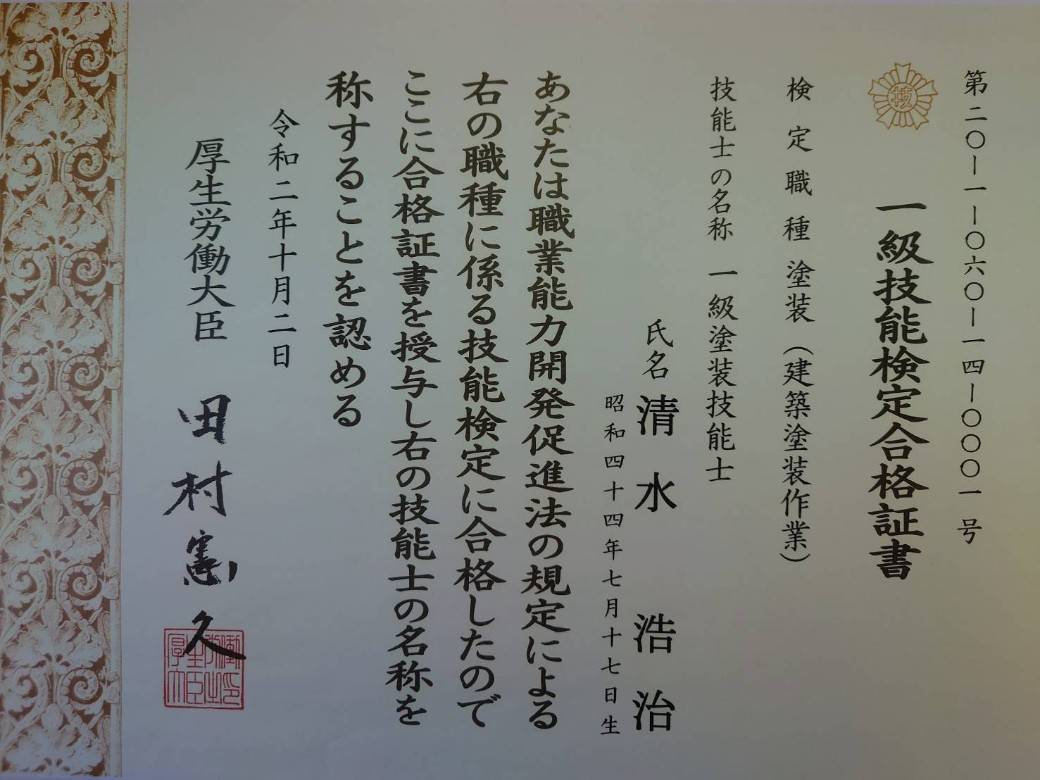 第二〇ー一ー〇六〇ー一四ー〇〇〇一号
一級技能検定合格証書
検定職種 塗装（建築塗装作業）
技能士の名称 一級塗装技能士
氏名 清水 浩治
昭和四十四年七月十七日生
あなたは職業能力開発促進法の規定による
右の職種に係る技能検定に合格したので
ここに合格証書を授与し右の技能士の名称を
称することを認める
令和二年十月二日
厚生労働大臣 田村憲久